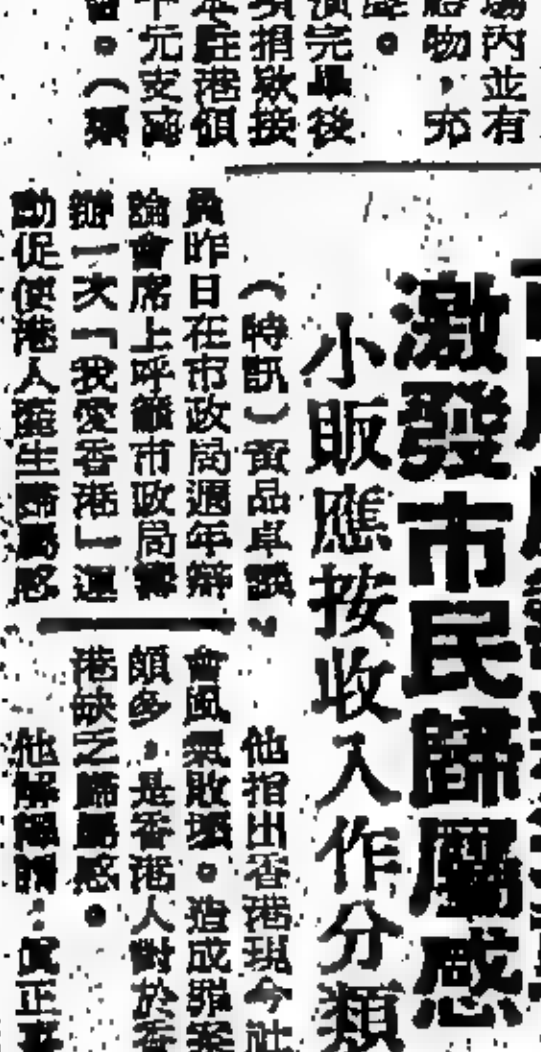 場內並有
贈物，充
演完畢後
項捐款按
年駐港領
千元支商
。（業
激發市民歸屬感
小販應按收入作分類
（特訊）黃品卓議
員昨日在市政局週年辯
論會席上呼籲市政局籌
辦一次「我愛香港」運
動促使港人產生歸屬感
他指出香港現今社
會風氣敗壞。造成罪案
頗多，是香港人對於香
港缺乏歸屬感。
他解釋謂：真正